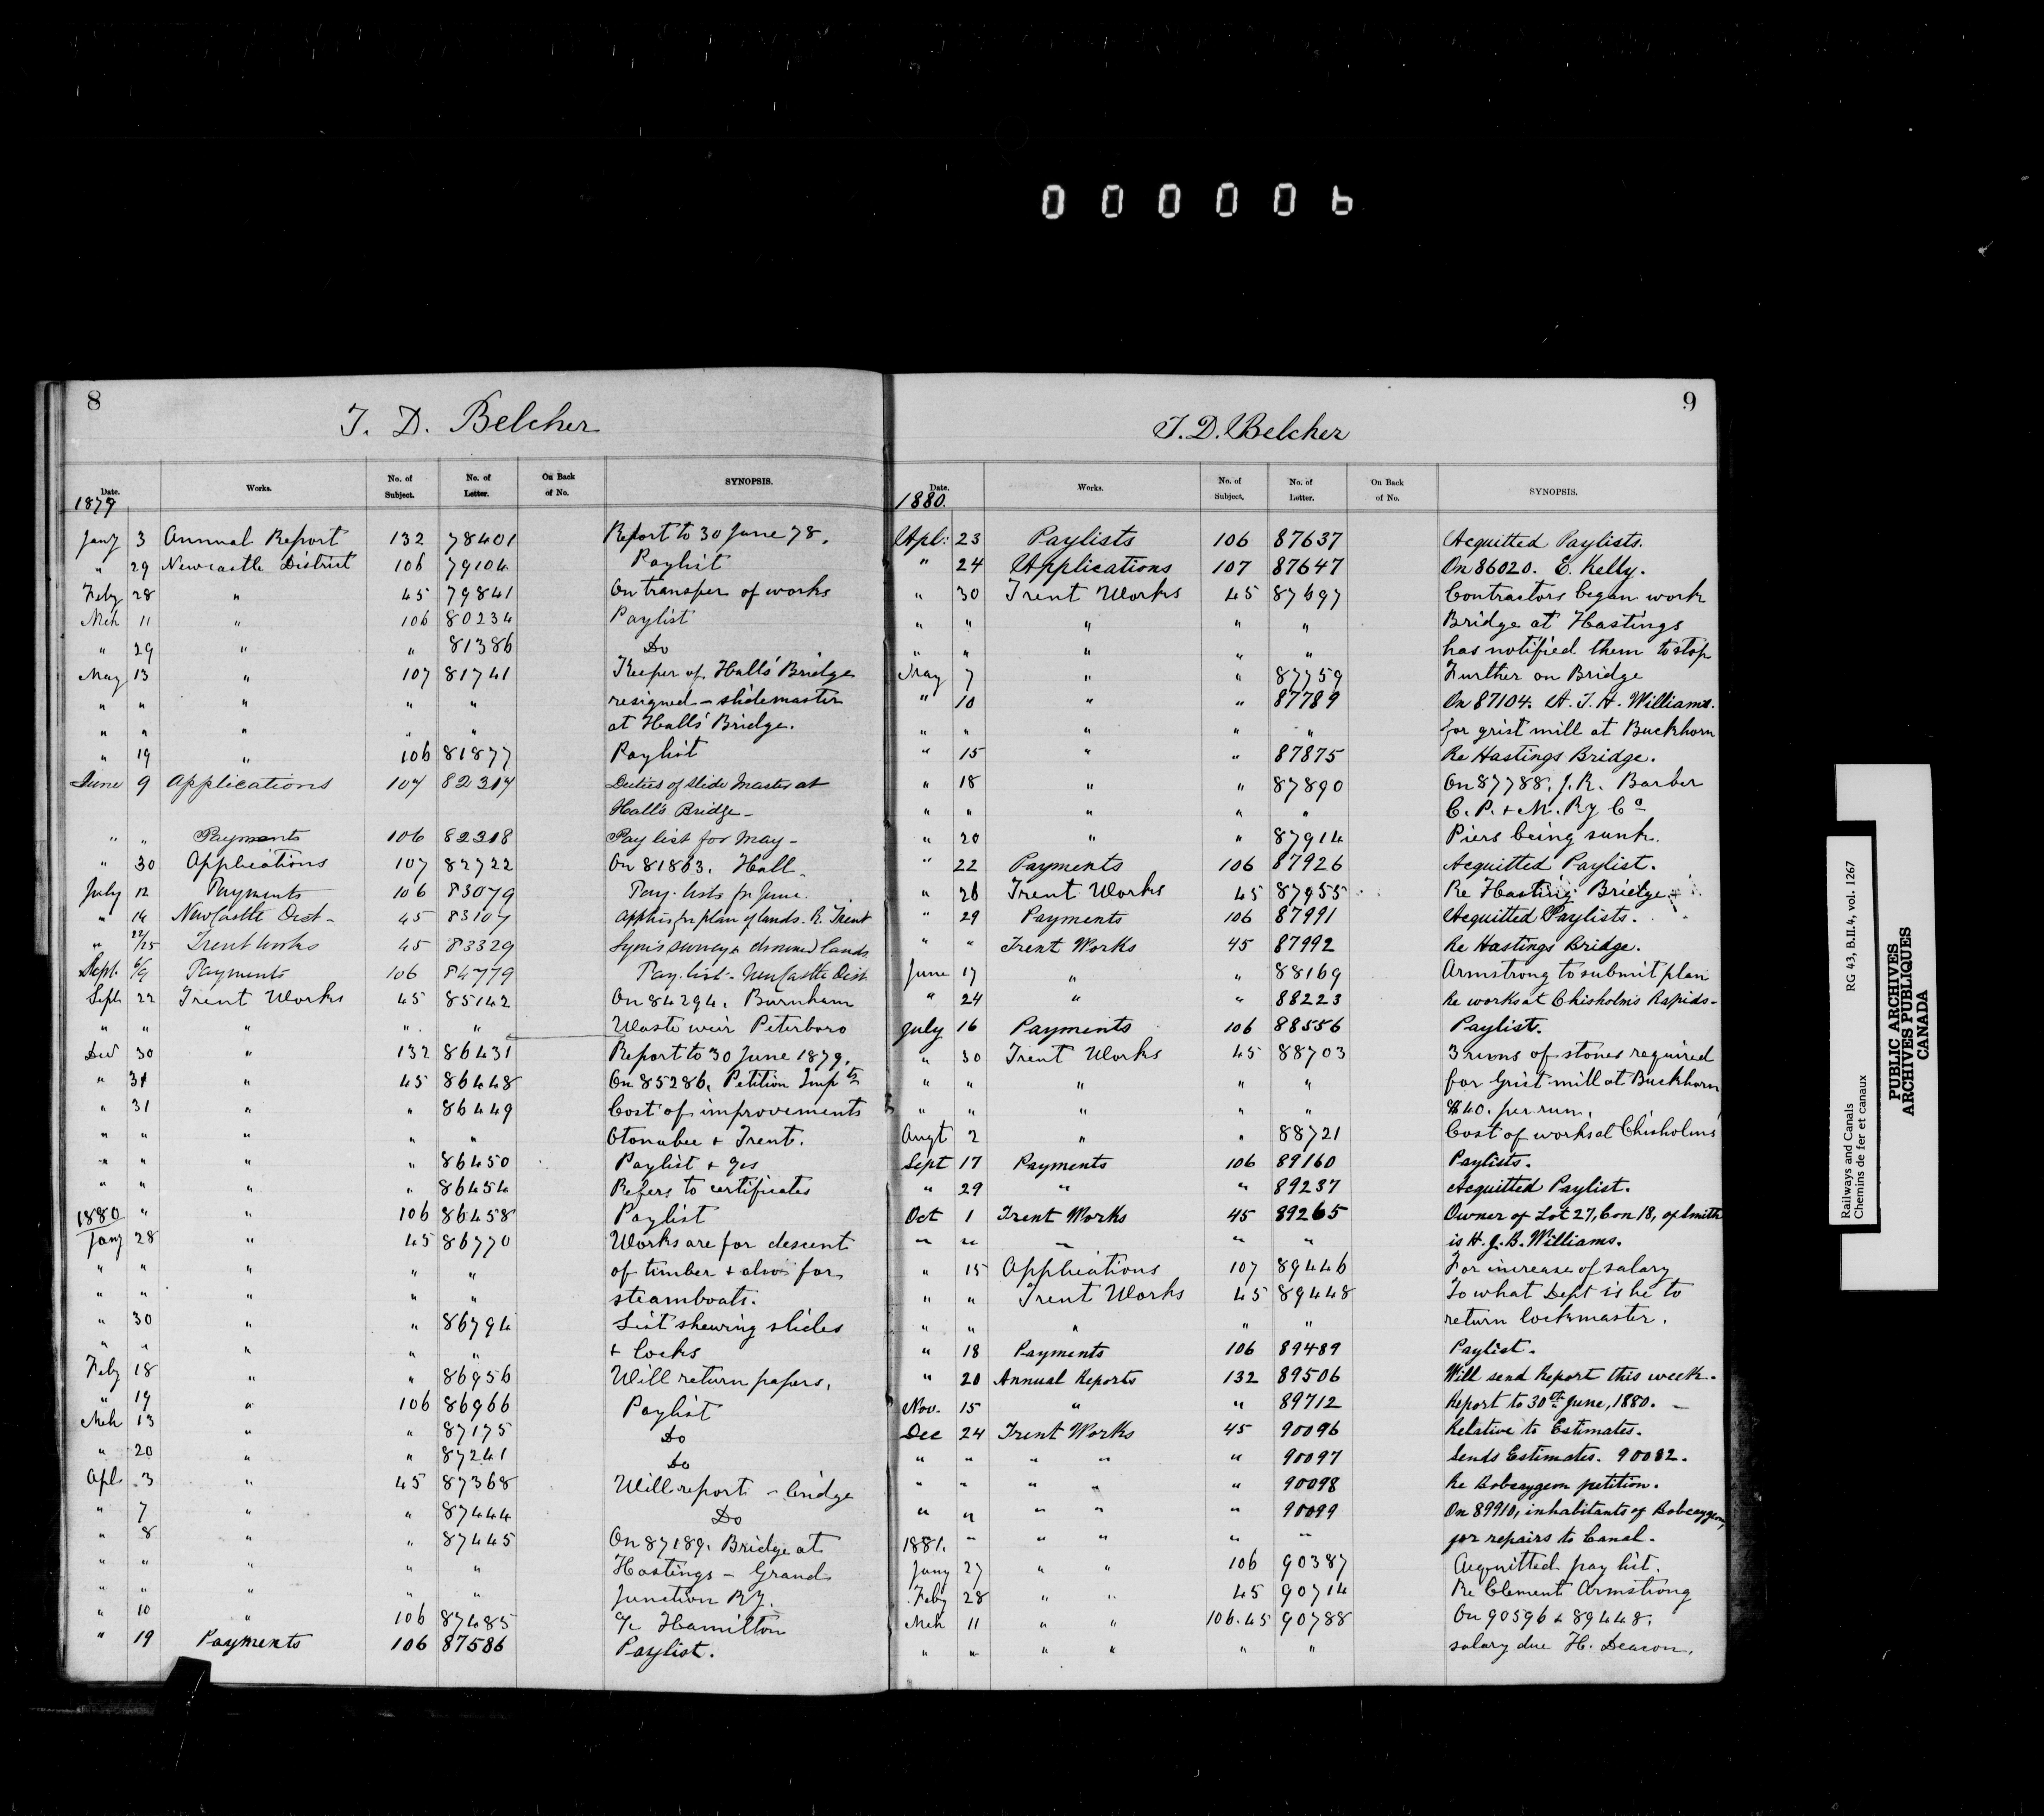 000006
8
T. D. Belcher
Date. Works. No. of Subject. No. of Letter. On Back of No. SYNOPSIS.
1879
Jany 3 Annual Report 132 78401 Report to 30 June 78.
" 29 Newcastle District 106 79104 Paylist
Feby 28 " 45 79841 On transfer of works
Mch 11 " 106 80234 Paylist
" 29 " " 81386 Do
May 13 " 107 81741 Keeper of Halls' Bridge
" " " " " resigned - slidemaster
" " " " " at Halls' Bridge.
" 19 " 106 81877 Paylist
June 9 Applications 107 82317 Duties of Slide Master at
Hall's Bridge -
" " Payments 106 82318 Pay list for May -
" 30 Applications 107 82722 On 81863. Hall -
July 12 Payments 106 83079 Pay-lists for June.
" 14 NewCastle Dist - 45 83107 for plan of lands. R. Trent
" 22/25 Trent Works 45 83329 survey & drowned lands
Sept. 6/9 Payments 106 84779 Pay-list - NewCastle Dist
Sept 22 Trent Works 45 85142 On 84294. Burnham
" " " " " Waste weir Peterboro
Dec 30 " 132 86431 Report to 30 June 1879.
" 31 " 45 86448 On 85286. Petition Imp ts
" 31 " " 86449 Cost of improvements
" " " " " Otonabee & Trent.
" " " " 86450 Paylist &
" " " " 86454 Refers to certificates
1880 " " 106 86458 Paylist
Jany 28 " 45 86770 Works are for descent
" " " " " of timber & also for
" " " " " steamboats.
" 30 " " 86794 List shewing slides
" " " " " & locks
Feby 18 " " 86956 Will return papers.
" 19 " 106 86966 Paylist
Mch 13 " " 87175 Do
" 20 " " 87241 Do
Apl 3 " 45 87368 Will report - bridge
" 7 " " 87444 Do
" 8 " " 87445 On 87189. Bridge at
" " " " " Hastings - Grand
" " " " " Junction Ry.
" 10 " 106 87485 a/c Hamilton
" 19 Payments 106 87586 Paylist.
9
T. D. Belcher
Date. Works. No. of Subject. No. of Letter. On Back of No. SYNOPSIS.
1880.
Apl: 23 Paylists 106 87637 Acquitted Paylists.
" 24 Applications 107 87647 On 86020. E. Kelly.
" 30 Trent Works 45 87697 Contractors began work
" " " " " Bridge at Hastings
" " " " " has notified them to stop
May 7 " " 87759 Further on Bridge
" 10 " " 87789 On 87104. A. T. H. Williams.
" " " " " for grist mill at Buckhorn
" 15 " " 87875 Re Hastings Bridge.
" 18 " " 87890 On 87788. J. R. Barber
" " " " " C. P. & M. Ry Co
" 20 " " 87914 Piers being sunk.
" 22 Payments 106 87926 Acquitted Paylist.
" 26 Trent Works 45 87955 Re Hastings Bridge.
" 29 Payments 106 87991 Acquitted Paylists.
" " Trent Works 45 87992 Re Hastings Bridge.
June 17 " " 88169 Armstrong to submit plan
" 24 " " 88223 Re works at Chisholm's Rapids -
July 16 Payments 106 88556 Paylist.
" 30 Trent Works 45 88703 3 runs of stones required
" " " " " for Grist mill at Buckhorn
" " " " " $40. per run.
Augt 2 " " 88721 Cost of works at Chisholms'
Sept 17 Payments 106 89160 Paylists.
" 29 " " 89237 Acquitted Paylist.
Oct 1 Trent Works 45 89265 Owner of Lot 27, Con 18, of Smith
" " " " " is H. J. B. Williams.
" 15 Applications 107 89446 For increase of salary
" " Trent Works 45 89448 To what Dept is he to
" " " " " return lockmaster.
" 18 Payments 106 89489 Paylist.
" 20 Annual Reports 132 89506 Will send Report this week -
Nov. 15 " " 89712 Report to 30th June, 1880. -
Dec 24 Trent Works 45 90096 Relative to Estimates.
" " " " " 90097 Sends Estimates. 90082.
" " " " " 90098 Re Bobcaygeon petition.
" " " " " 90099 On 89910, inhabitants of Bobcaygeon,
1881. " " " " " for repairs to Canal.
Jany 27 " " 106 90387 Acquitted pay list.
Feby 28 " " 45 90714 Re Clement Armstrong
Mch 11 " " 106.45 90788 On 90596 & 89448.
" " " " " " salary due H. Deacon.
Railways and Canals RG 43, B.II.4, vol. 1267
Chemins de fer et canaux
PUBLIC ARCHIVES
ARCHIVES PUBLIQUES
CANADA